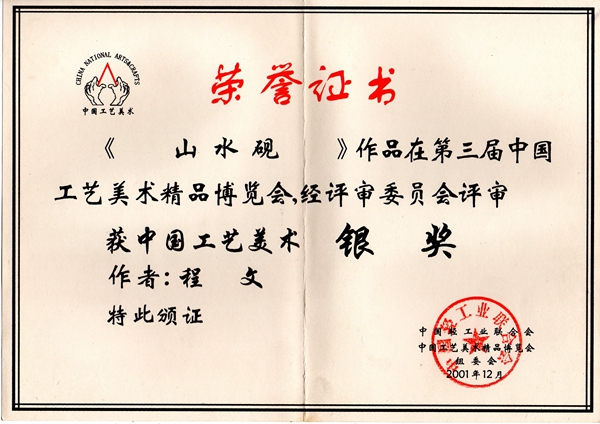 CHINA NATIONAL ARTS&CRAFTS
中国工艺美术
荣誉证书
《 山水砚 》作品在第三届中国
工艺美术精品博览会,经评审委员会评审
获中国工艺美术 银 奖
作者:程 文
特此颁证
中国轻工业联合会
中国工艺美术精品博览会
组委会
2001年12月
中国轻工业联合会